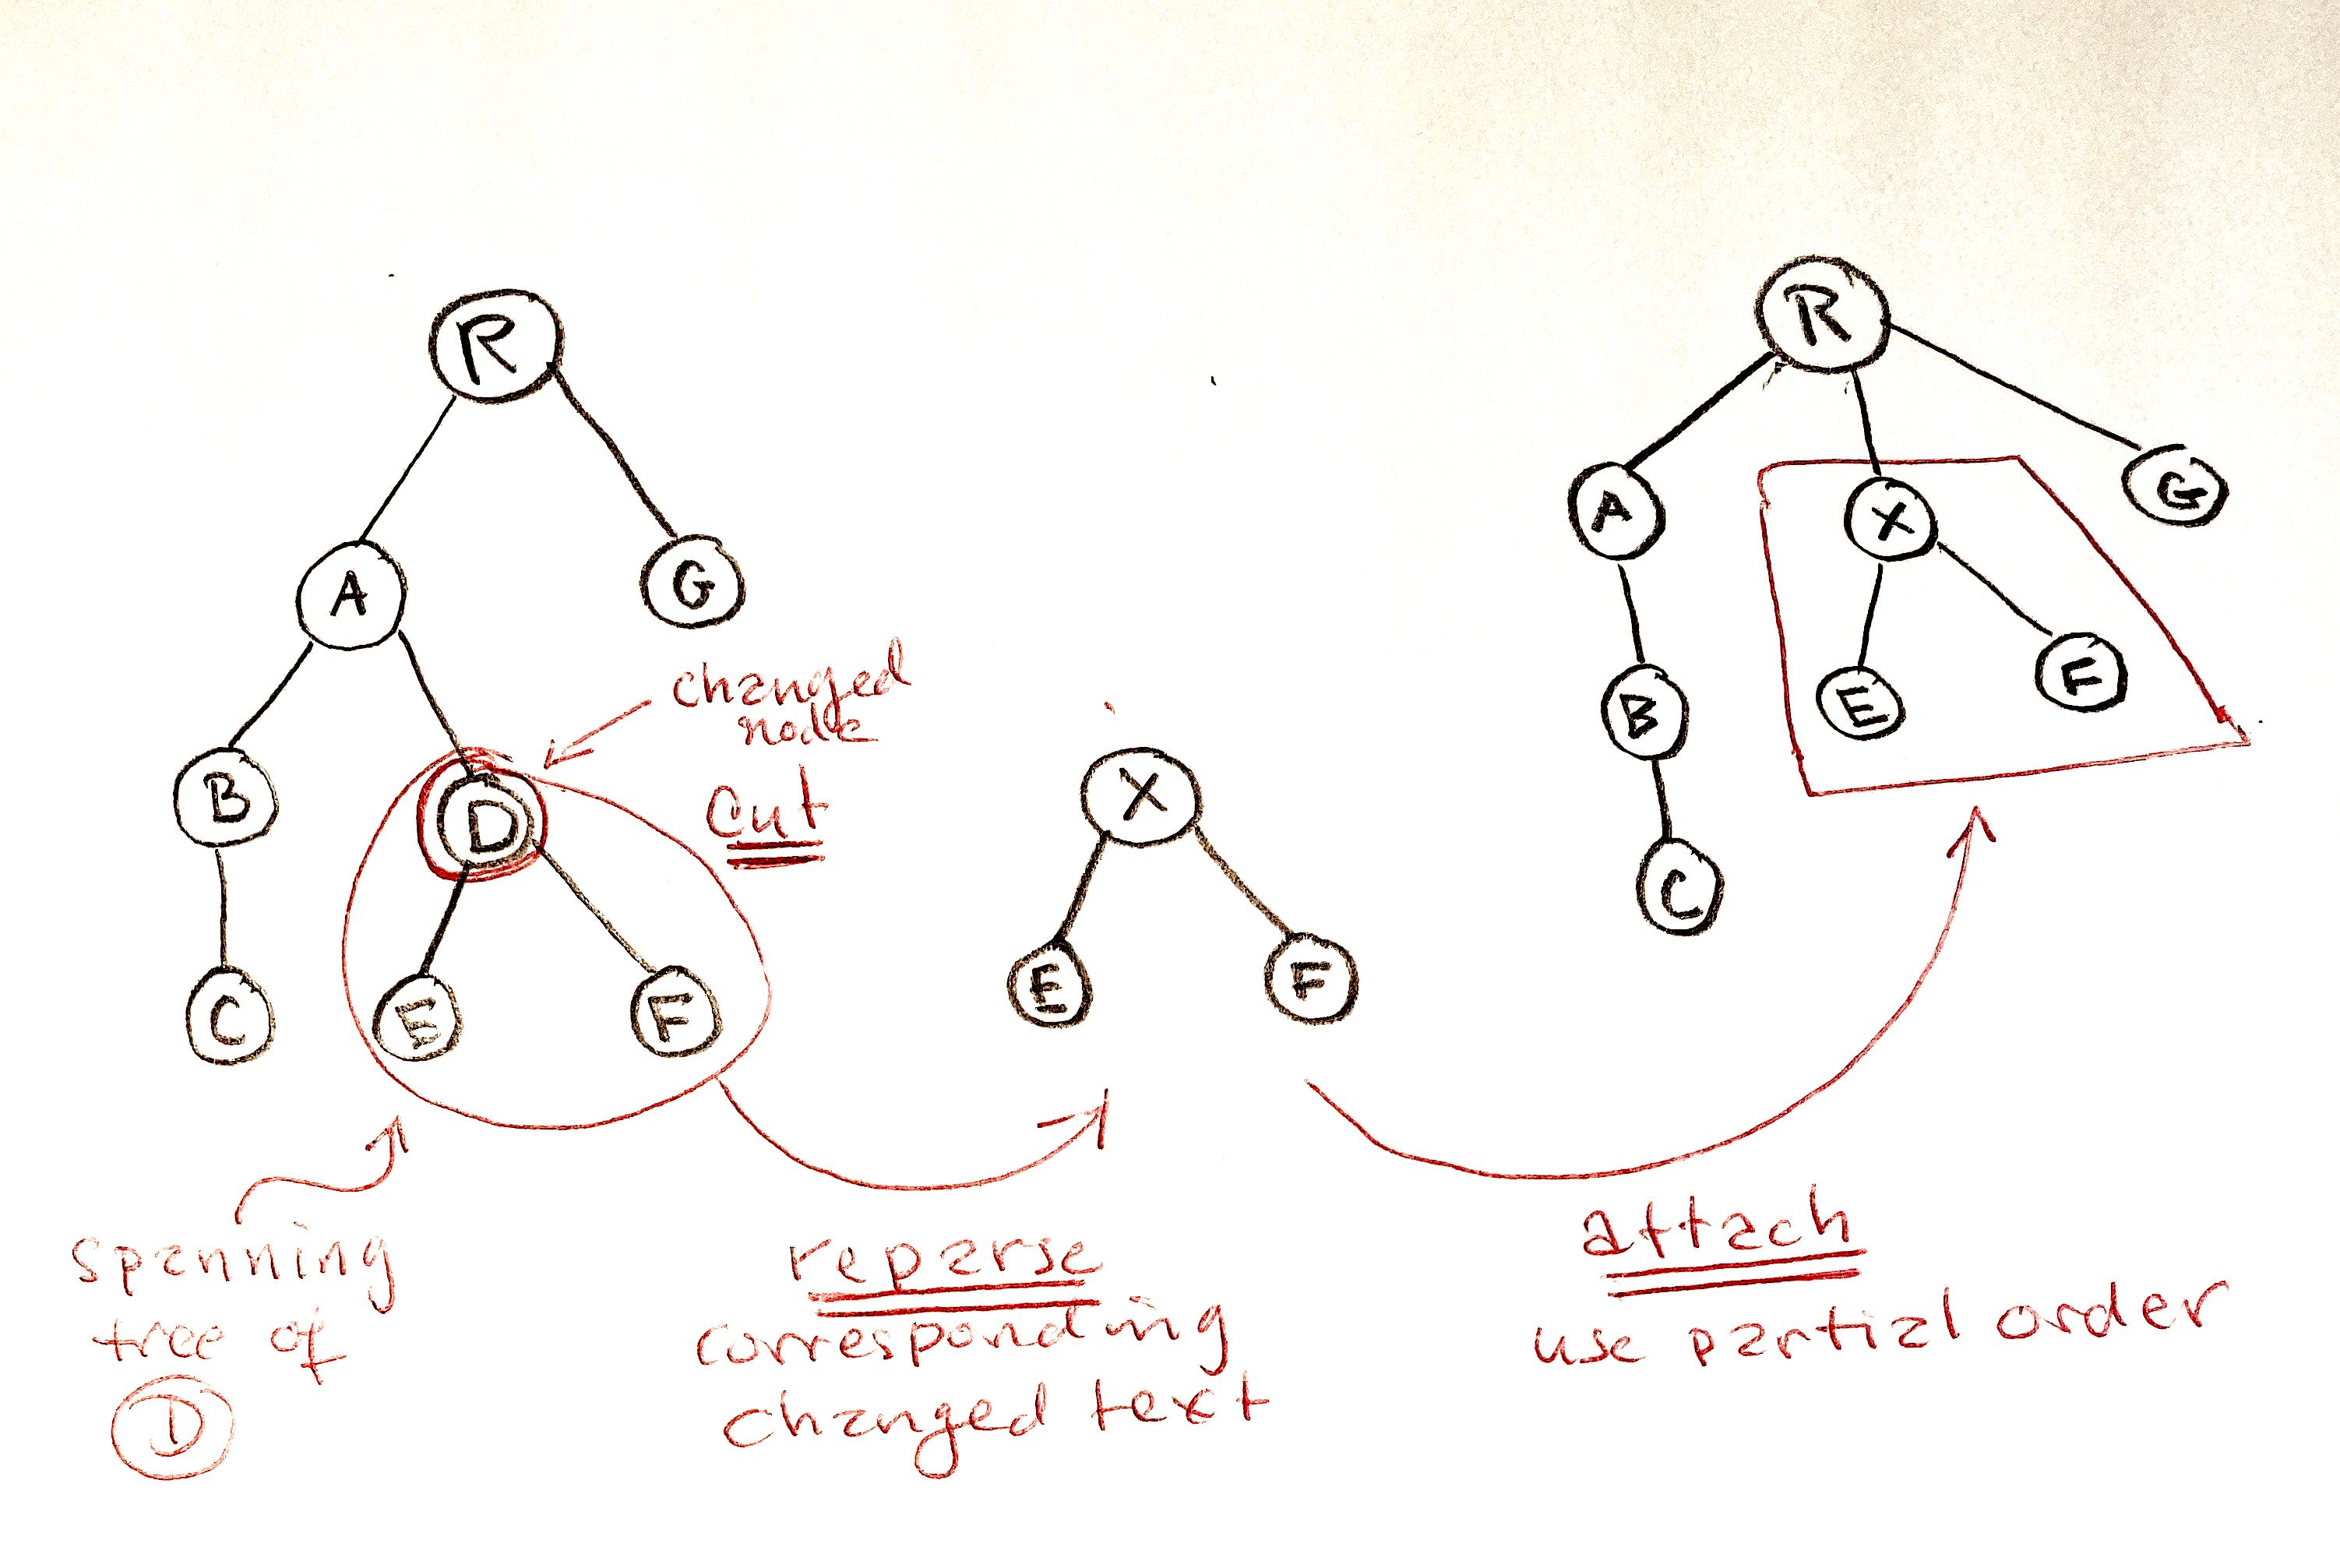 R
A
G
changed
node
B
D
cut
C
E
F
spanning
tree of
D
X
E
F
reparse
corresponding
changed text
R
A
X
G
B
E
F
C
attach
use partial order